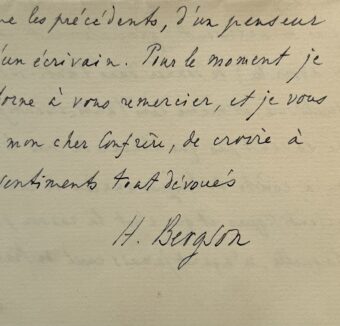 les précédents, d'un penseur
d'un écrivain. Pour le moment je
borne à vous remercier, et je vous
mon cher Confrère, de croire à
sentiments tout dévoués
H. Bergson